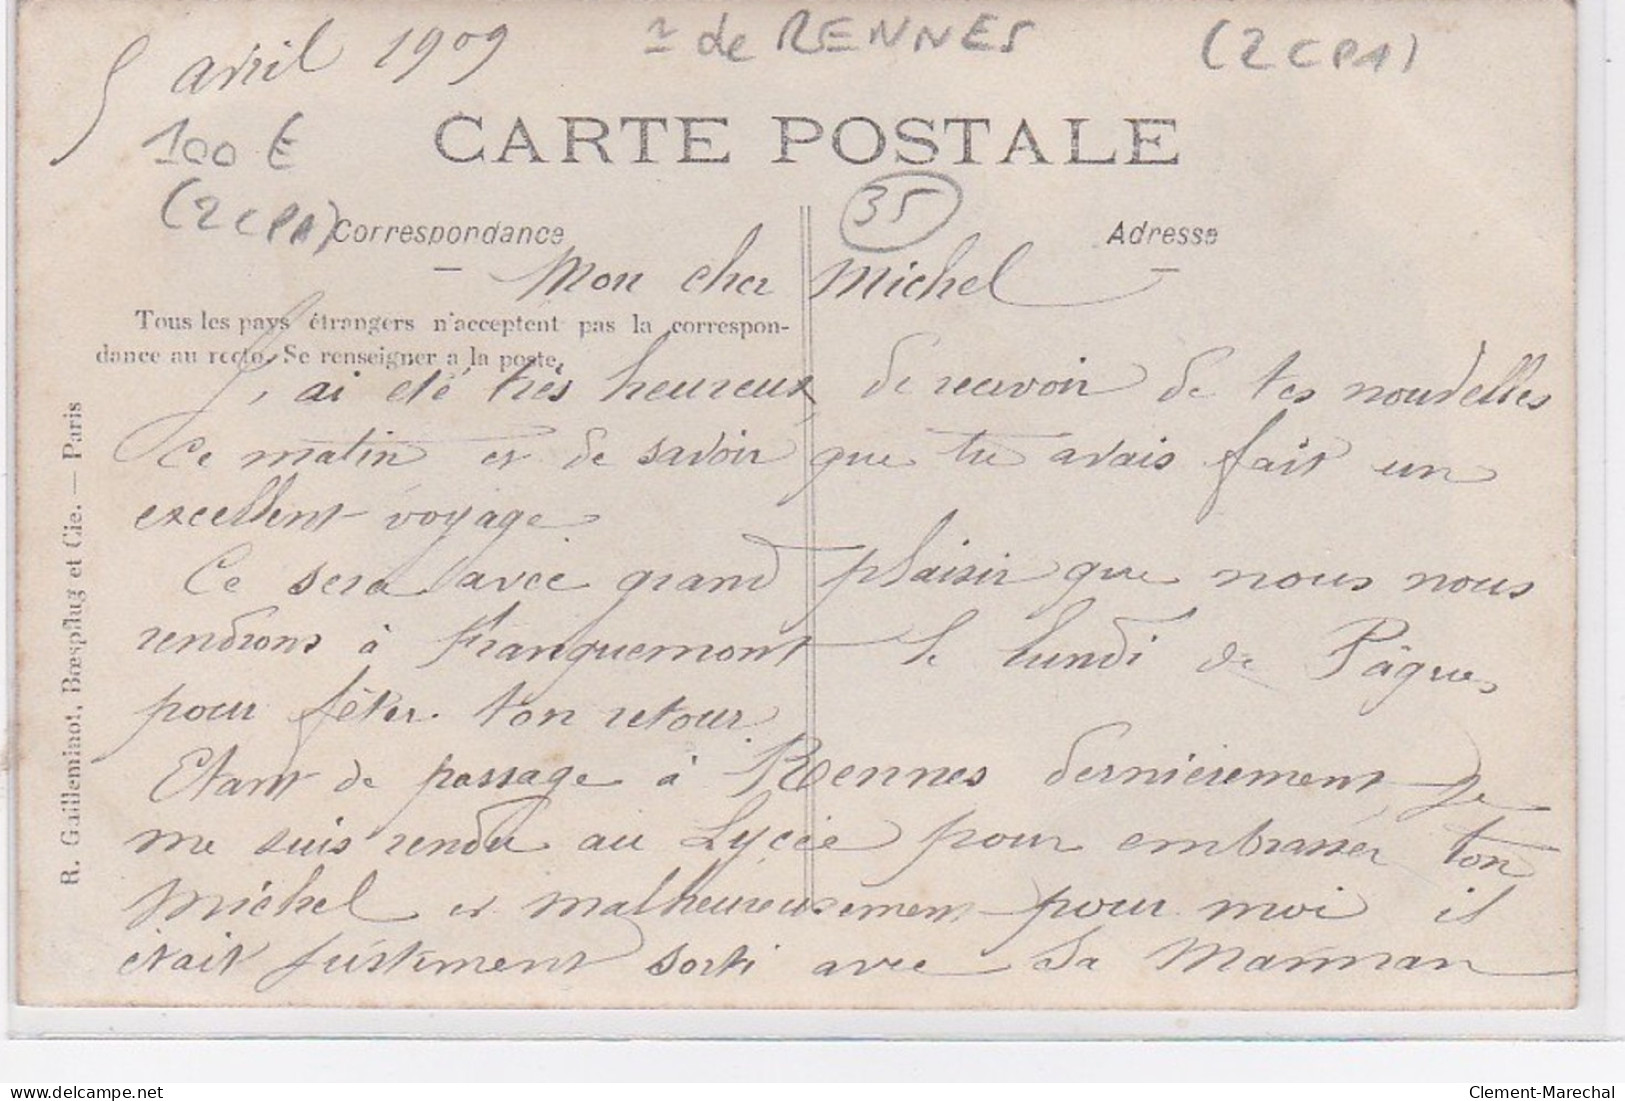 5 avril 1909
1 de RENNES
(2 CPA)
100 €
(2 CPA)
CARTE POSTALE
35
Correspondance
Adresse
Mon cher Michel
Tous les pays étrangers n'acceptent pas la correspon-
dance au recto. Se renseigner a la poste.
J'ai été très heureux de recevoir de tes nouvelles
ce matin et de savoir que tu avais fait un
excellent voyage
Ce sera avec grand plaisir que nous nous
rendrons à Franquemont le lundi de Pâques
pour fêter ton retour
Etant de passage à Rennes dernièrement je
me suis rendu au Lycée pour embrasser ton
Michel et malheureusement pour moi il
était justement sorti avec Sa Maman
R. Guilleminot, Bœspflug et Cie. — Paris
Clement-Marechal